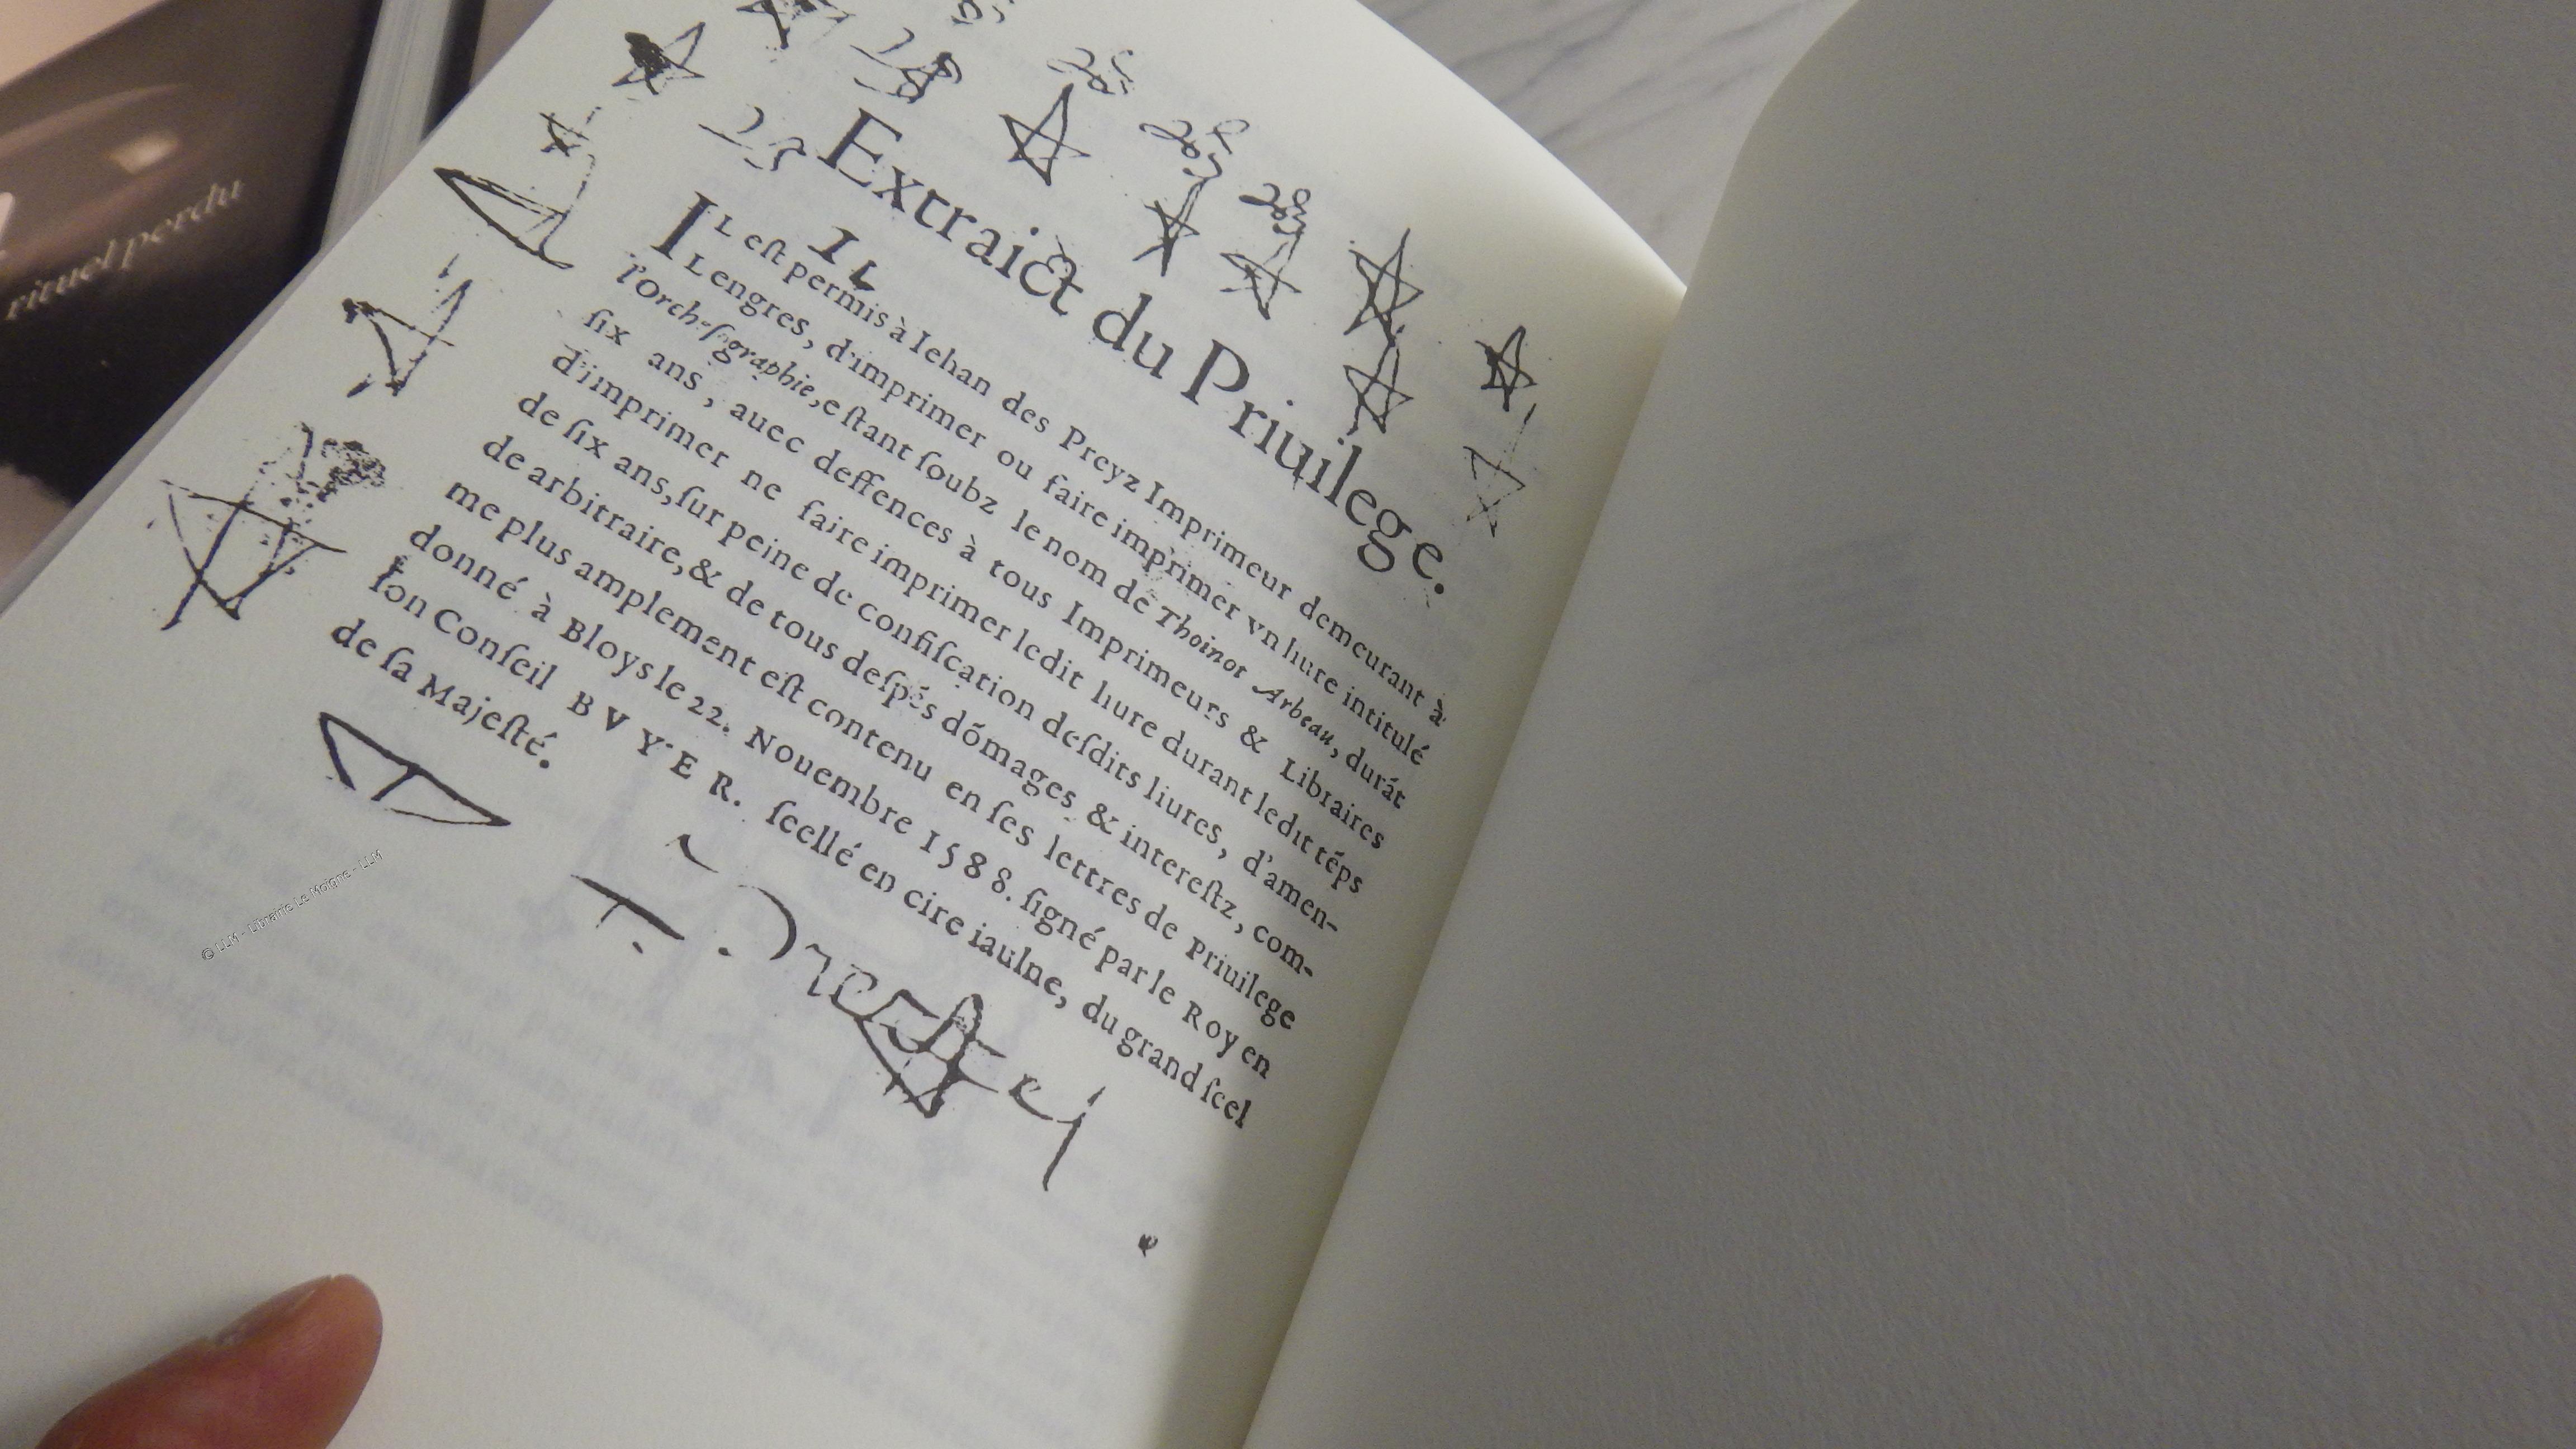 rituel perdu
Extraict du Priuilege.
IL eſt permis à Iehan des Preyz Imprimeur demeurant à
Lengres, d'imprimer ou faire imprimer vn liure intitulé
l'Orcheſographie, eſtant ſoubz le nom de Thoinot Arbeau, durát
ſix ans, auec deffences à tous Imprimeurs & Libraires
d'imprimer ne faire imprimer ledit liure durant ledit téps
de ſix ans, ſur peine de confiſcation deſdits liures, d'amen-
de arbitraire, & de tous deſpés dómages & intereſtz, com-
me plus amplement eſt contenu en ſes lettres de Priuilege
donné à Bloys le 22. Nouembre 1588. ſigné par le Roy en
ſon Conſeil BVYER. ſcellé en cire iaulne, du grand ſcel
de ſa Majeſté.
© LLM - Librairie Le Moigne - LLM